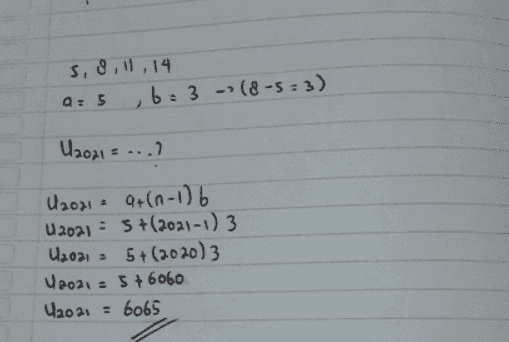 5, 8, 11, 14
a = 5 , b = 3 -> (8-5=3)
U2021 = ...?
U2021 = a+(n-1) b
U2021 = 5+(2021-1) 3
U2021 = 5+(2020) 3
U2021 = 5+6060
U2021 = 6065